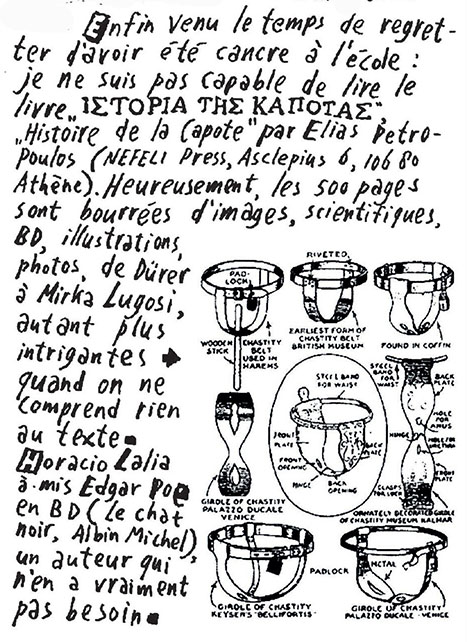 Enfin venu le temps de regret-
ter d'avoir été cancre à l'école :
je ne suis pas capable de lire le
livre „ΙΣΤΟΡΙΑ ΤΗΣ ΚΑΠΟΤΑΣ",
„Histoire de la Capote" par Elias Petro-
Poulos (NEFELI Press, Asclepius 6, 106 80
Athène). Heureusement, les 500 pages
sont bourrées d'images, scientifiques,
BD, illustrations,
photos, de Dürer
à Mirka Lugosi,
autant plus
intrigantes
quand on ne
comprend rien
au texte.
Horacio Lalia
a mis Edgar Poe
en BD (Le chat
noir, Albin Michel),
un auteur qui
n'en a vraiment
pas besoin.
PAD-
LOCK
WOODEN
STICK
CHASTITY
BELT
USED IN
HAREMS
RIVETED
EARLIEST FORM OF
CHASTITY BELT
BRITISH MUSEUM
FOUND IN COFFIN
GIRDLE OF CHASTITY
PALAZZO DUCALE
VENICE
STEEL BAND
FOR WAIST
FRONT
PLATE
FRONT
OPENING
HINGE
BACK
OPENING
BACK
PLATE
STEEL
BAND
FOR
WAIST
BACK
PLATE
HOLE
FOR
ANUS
HINGE
HOLE FOR
URETHRA
FRONT
PLATE
CLASPS
FOR LOCK
ORNATELY DECORATED GIRDLE
OF CHASTITY MUSEUM KALMAR
GIRDLE OF CHASTITY
KEYSER'S "BELLIFORTIS"
PADLOCK
METAL
GIRDLE OF CHASTITY
PALAZZO DUCALE - VENICE